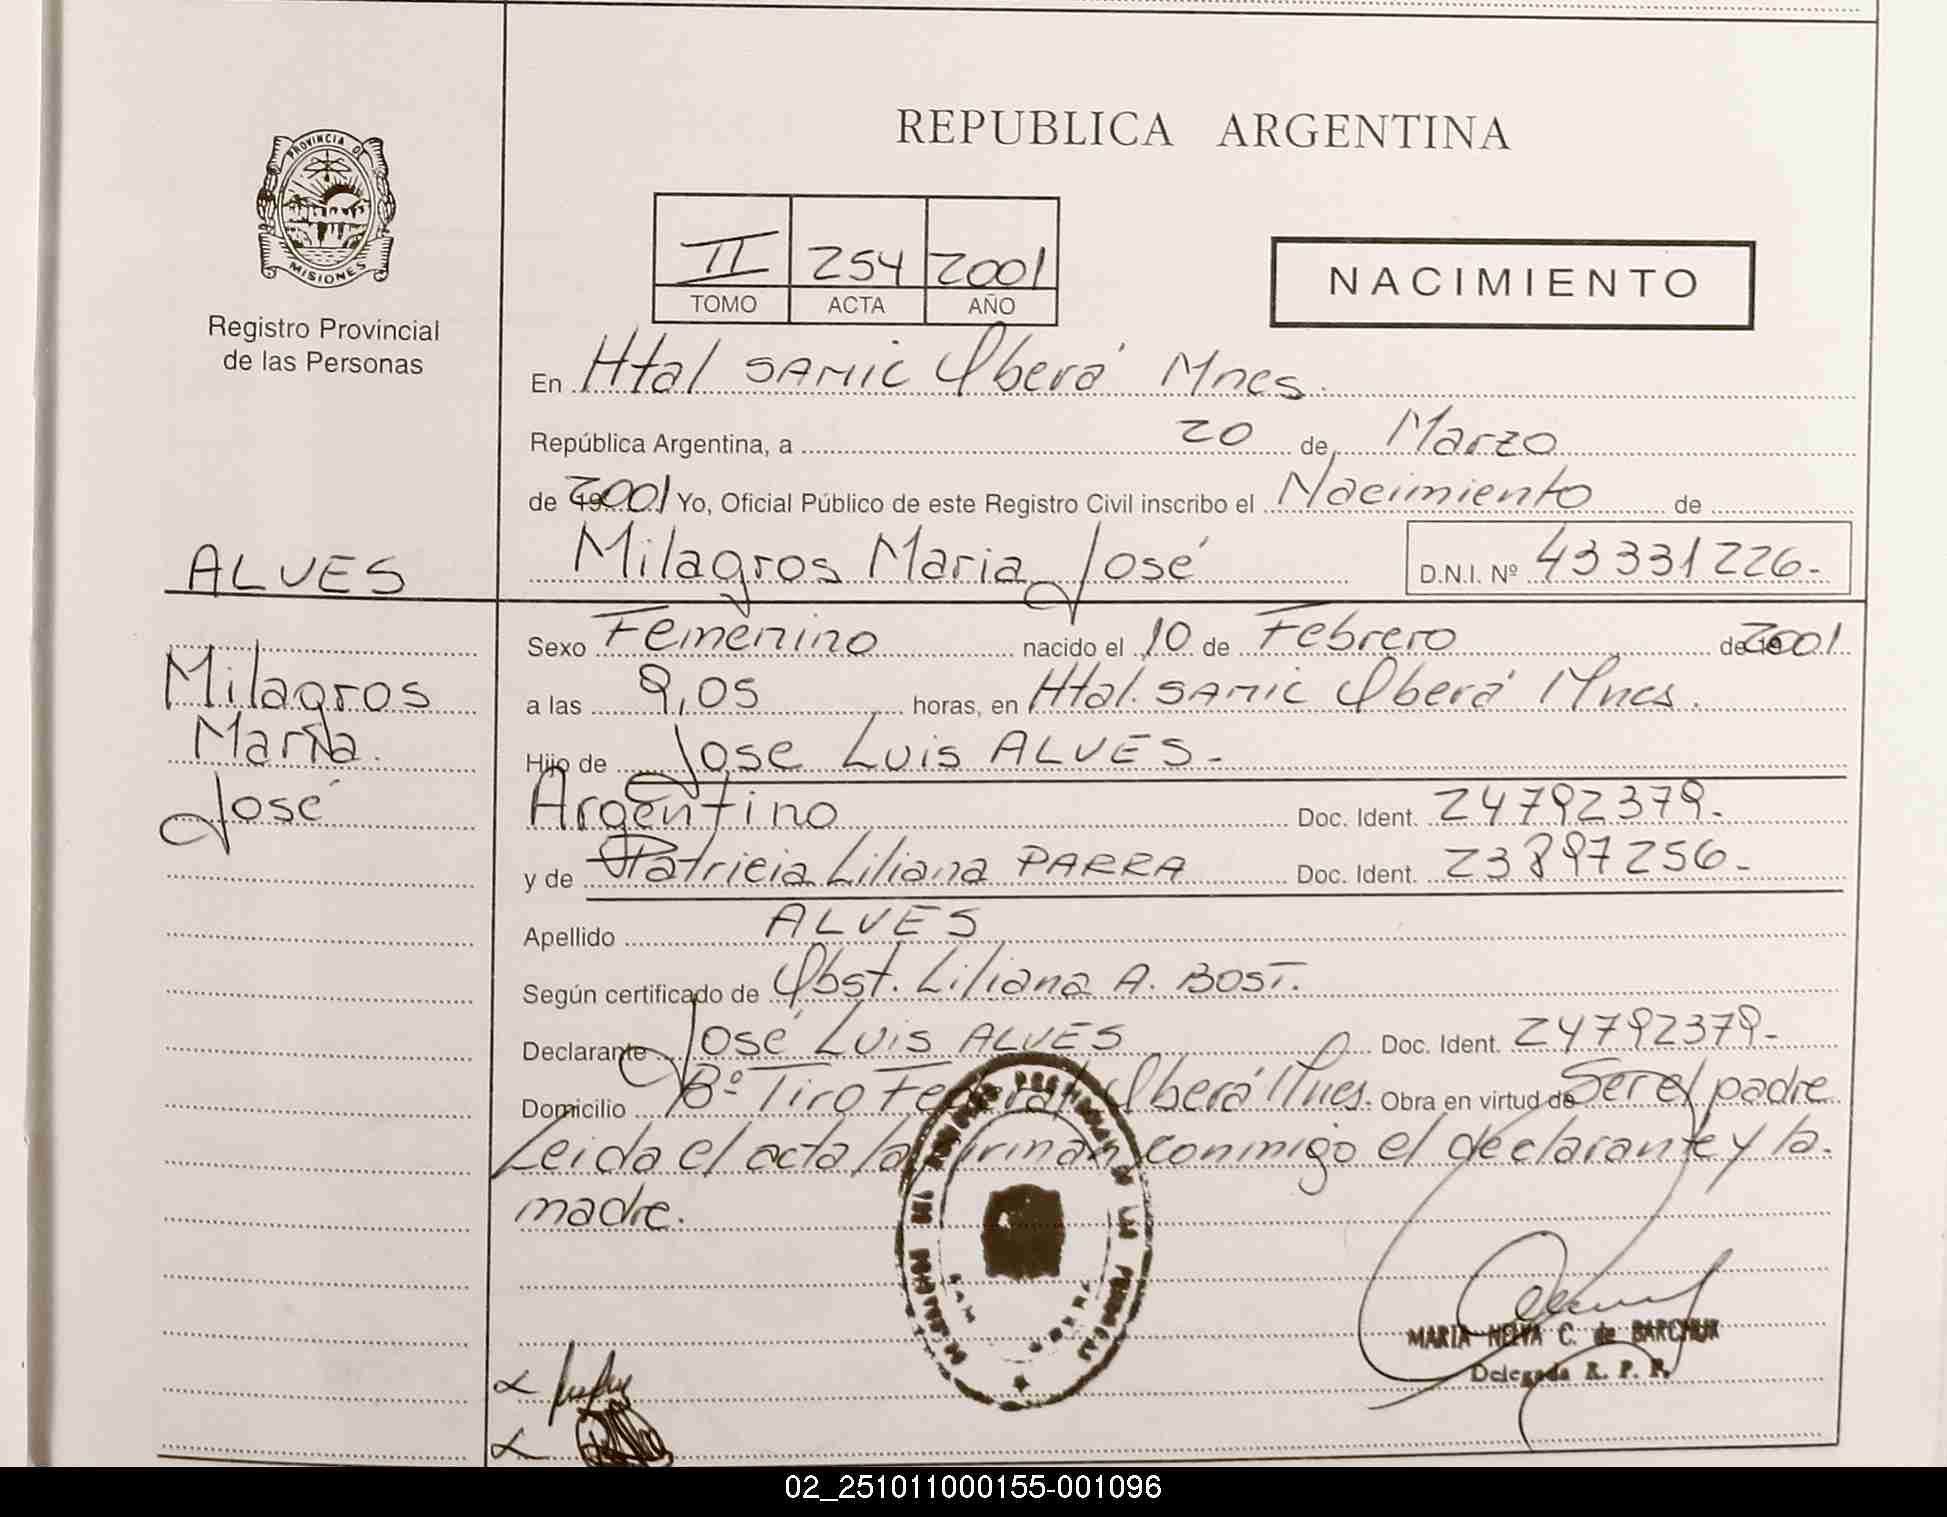 REPUBLICA ARGENTINA
PROVINCIA DE
MISIONES
Registro Provincial
de las Personas
II 254 2001
TOMO ACTA AÑO
NACIMIENTO
En Htal SAMIC Oberá Mnes.
República Argentina, a 20 de Marzo
de 2001 Yo, Oficial Público de este Registro Civil inscribo el Nacimiento de
ALVES
Milagros Maria José D.N.I. Nº 43331226.-
Milagros
Maria.
José
Sexo Femenino nacido el 10 de Febrero de 2001.
a las 9,05 horas, en Htal. SAMIC Oberá Mnes.
Hijo de Jose Luis ALVES.-
Argentino Doc. Ident. 24792379.-
y de Patricia Liliana PARRA Doc. Ident. 23897256.-
Apellido ALVES
Según certificado de Obst. Liliana A. BOST.
Declarante José Luis ALVES Doc. Ident. 24792379.-
Domicilio Bº Tiro Federal Oberá Mnes. Obra en virtud de Ser el padre
Leida el acta la firman conmigo el declarante y la
madre.
MARIA NELVA C. de BARCHUK
Delegada R. P. P.
02_251011000155-001096